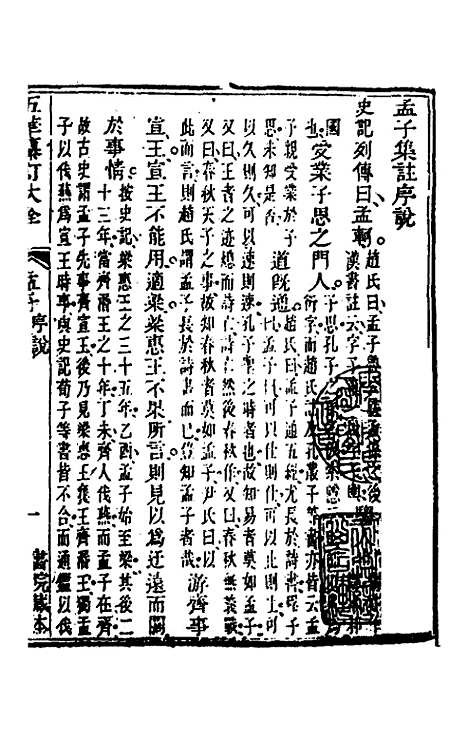 孟子集註序說
史記列傳曰孟軻
趙氏曰孟子
漢書註云字子
國
也
受業子思之門人
子思孔子
衍字而趙氏
孔叢子等書亦皆云孟
子親受業於子思未知是否
道既通
趙氏曰孟子通五經尤長於詩書程子
曰孟子曰可以仕則仕可以止則止可
以久則久可以速則速孔子聖之時者也故知易者莫如孟子
又曰王者之迹熄而詩亡詩亡然後春秋作又曰春秋無義戰
又曰春秋天子之事故知春秋者莫如孟子尹氏曰以
此而言則趙氏謂孟子長於詩書而已豈知孟子者哉
游齊事
宣王宣王不能用適梁梁惠王不果所言則見以為迂遠而闊
於事情
按史記梁惠王之三十五年乙酉孟子始至梁其後二
十三年當齊湣王之十年丁未齊人伐燕而孟子在齊
故古史謂孟子先事齊宣王後乃見梁惠王襄王齊湣王獨孟
子以伐燕為宣王時事與史記荀子等書皆不合而通鑑以伐
大全
孟子序說
一
書院藏本